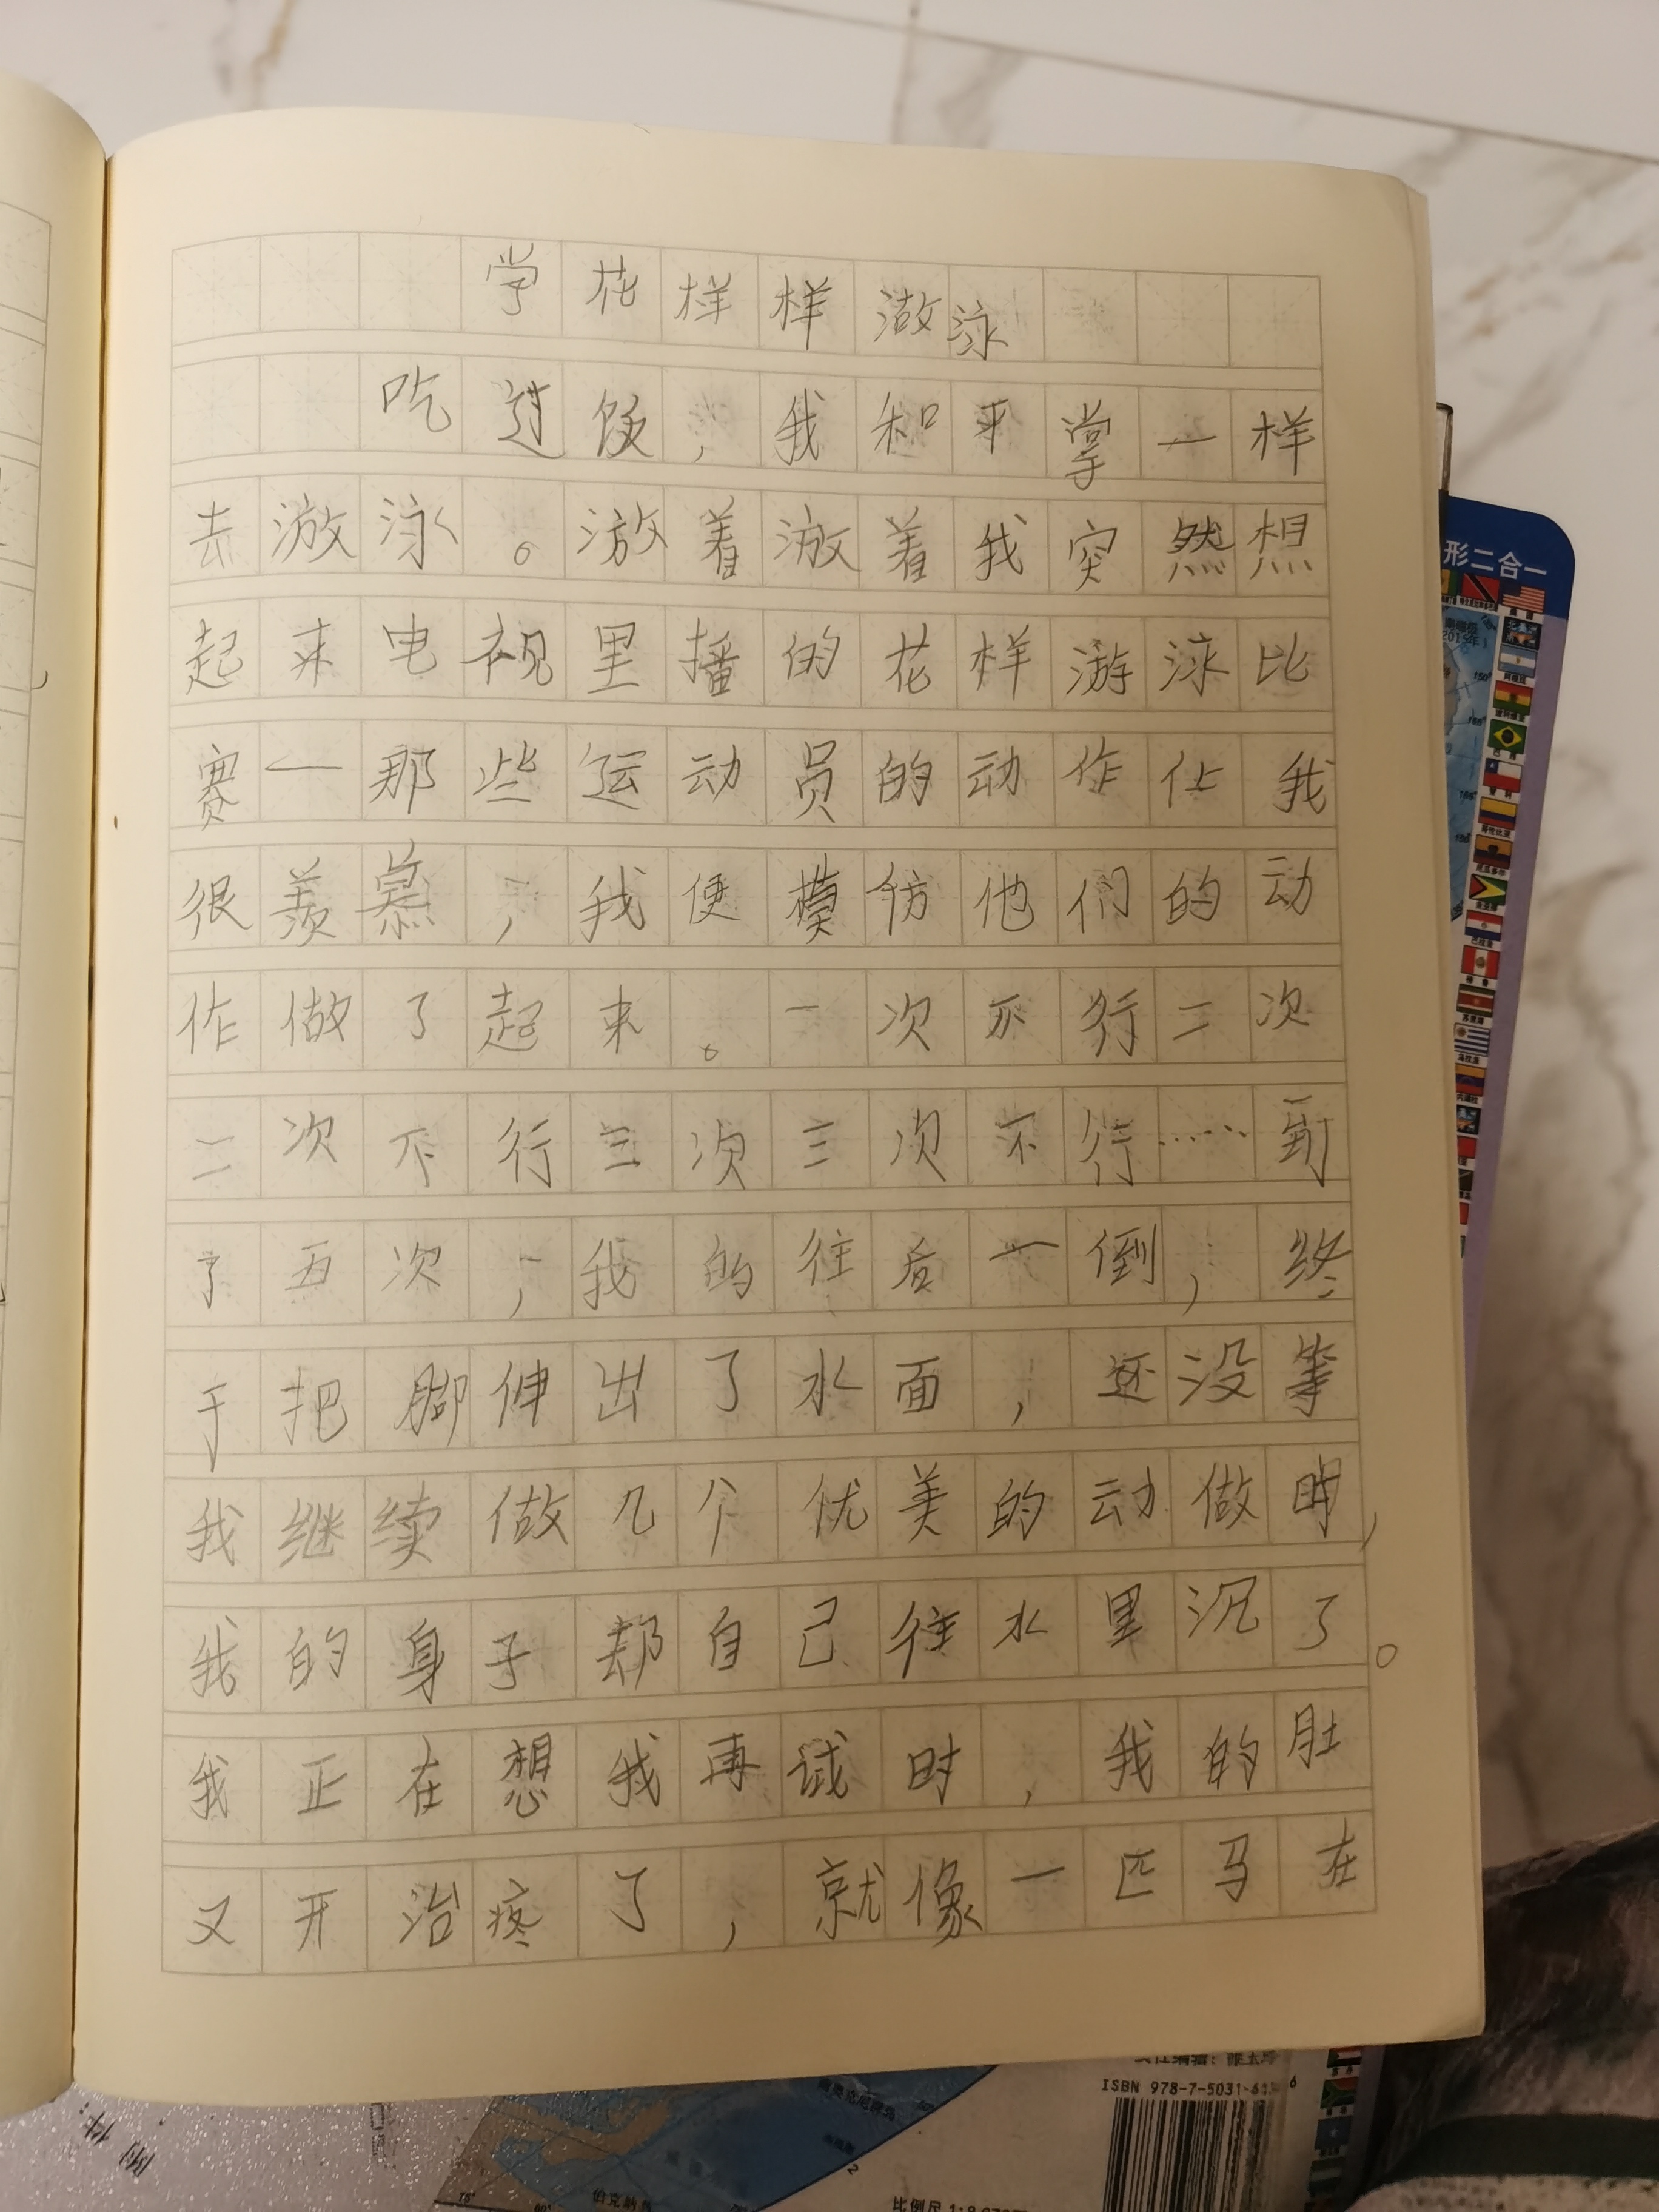 学花样样游泳
吃过饭，我和平掌一样
去游泳。游着游着我突然想
起来电视里播的花样游泳比
赛一那些运动员的动作让我
很羡慕，我便模仿他们的动
作做了起来。一次不行二次
二次不行三次三次不行……到
了五次，我的往后一倒，终
于把脚伸出了水面，还没等
我继续做几个优美的动做时，
我的身子却自己往水里沉了。
我正在想我再试时，我的肚
又开治疼了，就像一匹马在
形二合一
ISBN 978-7-5031-6
附件：